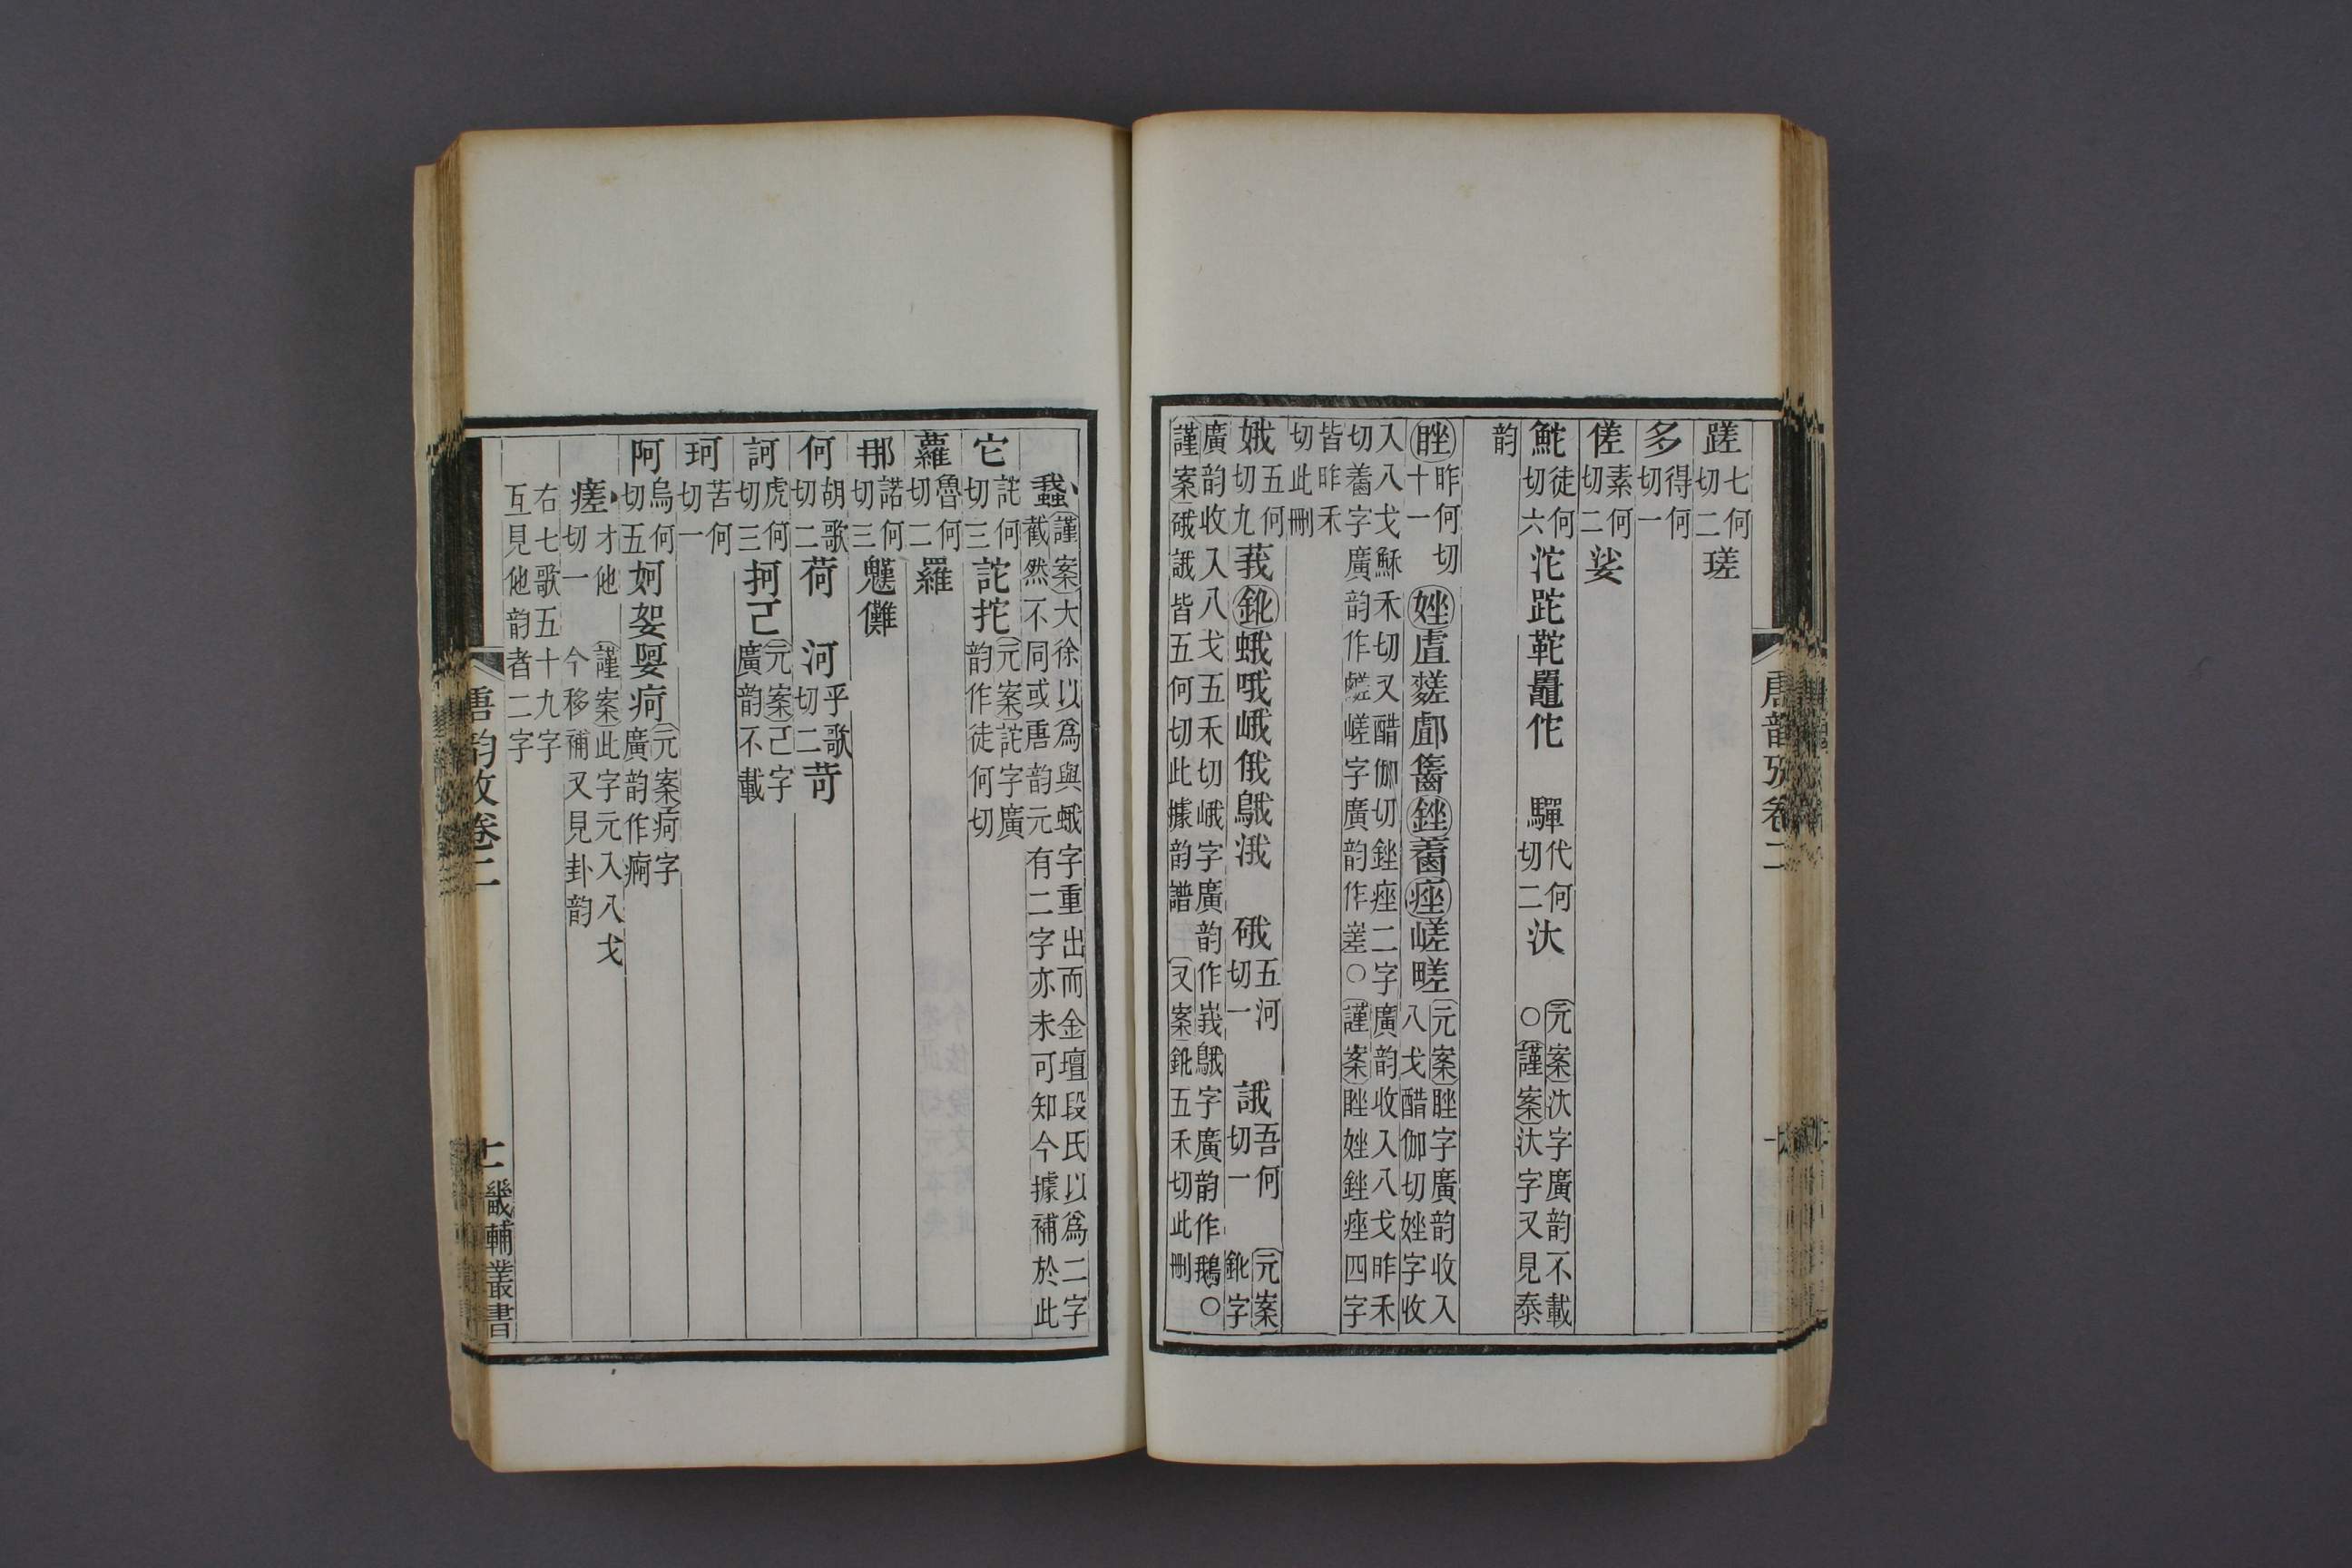 唐韵攷卷二
蹉七何切二瑳
多得何切一
傞素何切二娑
鮀徒何切六沱跎鞁鼉佗 驒代何切二汏 元案汏字廣韵不載○謹案汏字又見泰
韵
䏨昨何切十一 㛗䖒𪍴䣜䰈銼䴾痤嵯䁟 元案䏨字廣韵收入八戈醋伽切㛗字收
入八戈穌禾切又醋伽切銼痤二字廣韵收入八戈昨禾切䴾字廣韵作䰈嵯字廣韵作嵳○謹案䏨㛗銼痤四字
皆昨禾切此刪
娥五何切九莪鈋蛾哦峨俄鵝涐 硪五河切一 誐吾何切一 元案鈋字
廣韵收入八戈五禾切峨字廣韵作峩鵝字廣韵作鵞○謹案硪誐皆五何切此據韵譜 又案鈋五禾切此刪
蟁謹案大徐以爲與蛾字重出而金壇段氏以爲二字截然不同或唐韵元有二字亦未可知今據補於此
它託何切三詑拕 元案詑字廣韵作徒何切
蘿魯何切二羅
那諾何切三魌儺
何胡歌切二荷 河乎歌切二苛
訶虎何切三抲己 元案己字廣韵不載
珂苦何切一
阿烏何切五妸娿娿疴 元案疴字廣韵作痾
瘥才他切一 謹案此字元入八戈今移補又見卦韵
右七歌五十九字
互見他韵者二字
唐韵攷卷二
畿輔叢書